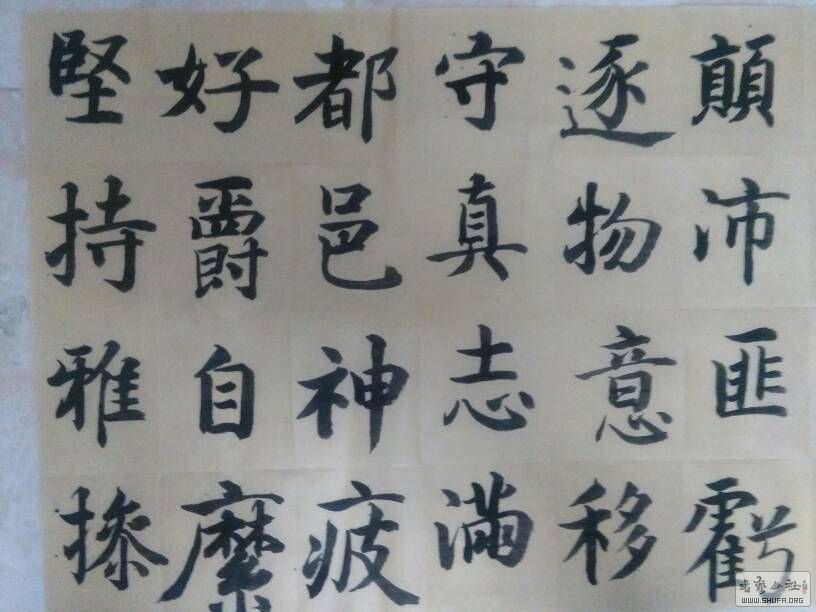 顛沛匪虧
逐物意移
守真志滿
都邑神疲
好爵自縻
堅持雅操
书艺公社
WWW.SHUFA.ORG